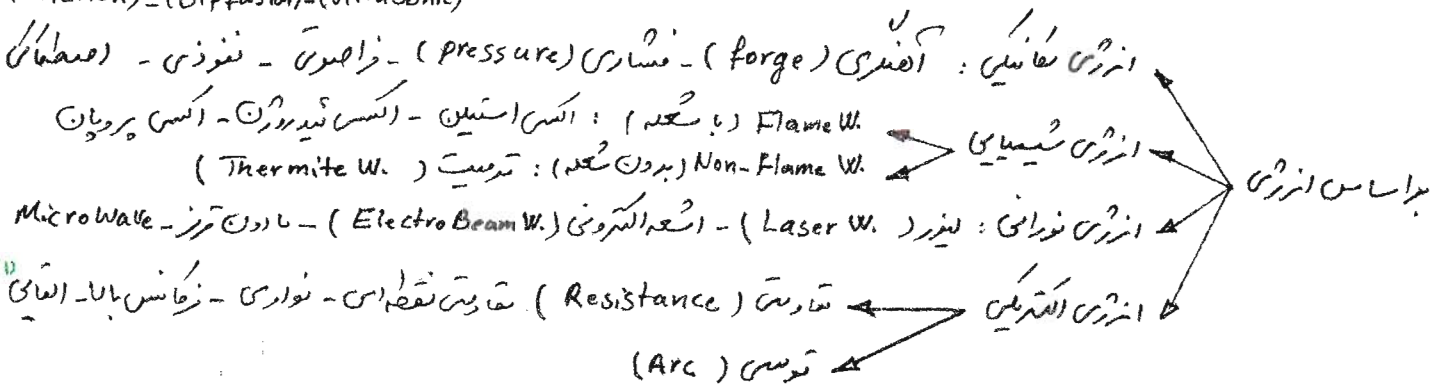 (Diffusion)-(Ultrasonic)
انرژی مکانیکی : آهنگری (forge) - فشاری (pressure) - فراصوتی - نفوذی - اصطکاکی
Flame W. (با شعله) : اکسی استیلن - اکسی هیدروژن - اکسی پروپان
انرژی شیمیایی
Non-Flame W. (بدون شعله) : ترمیت (Thermite W.)
براساس انرژی
انرژی نورانی : لیزر (Laser W.) - اشعه الکترونی (ElectroBeam W.) - مادون قرمز - MicroWave
انرژی الکتریکی
مقاومتی (Resistance) مقاومتی نقطه‌ای - نواری - فرکانس بالا - القایی
قوسی (Arc)